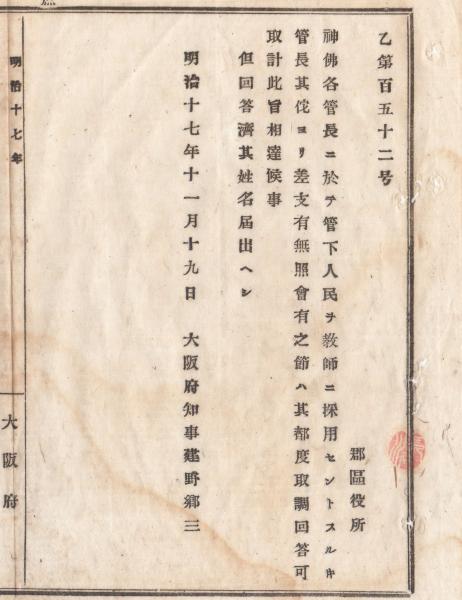 乙第百五十二号
郡區役所
神佛各管長ニ於テ管下人民ヲ教師ニ採用セントスルキ
管長其侘ヨリ差支有無照會有之節ハ其都度取調回答可
取計此旨相達候事
但回答濟其姓名屆出ヘシ
明治十七年十一月十九日 大阪府知事建野郷三
明治十七年
大阪府